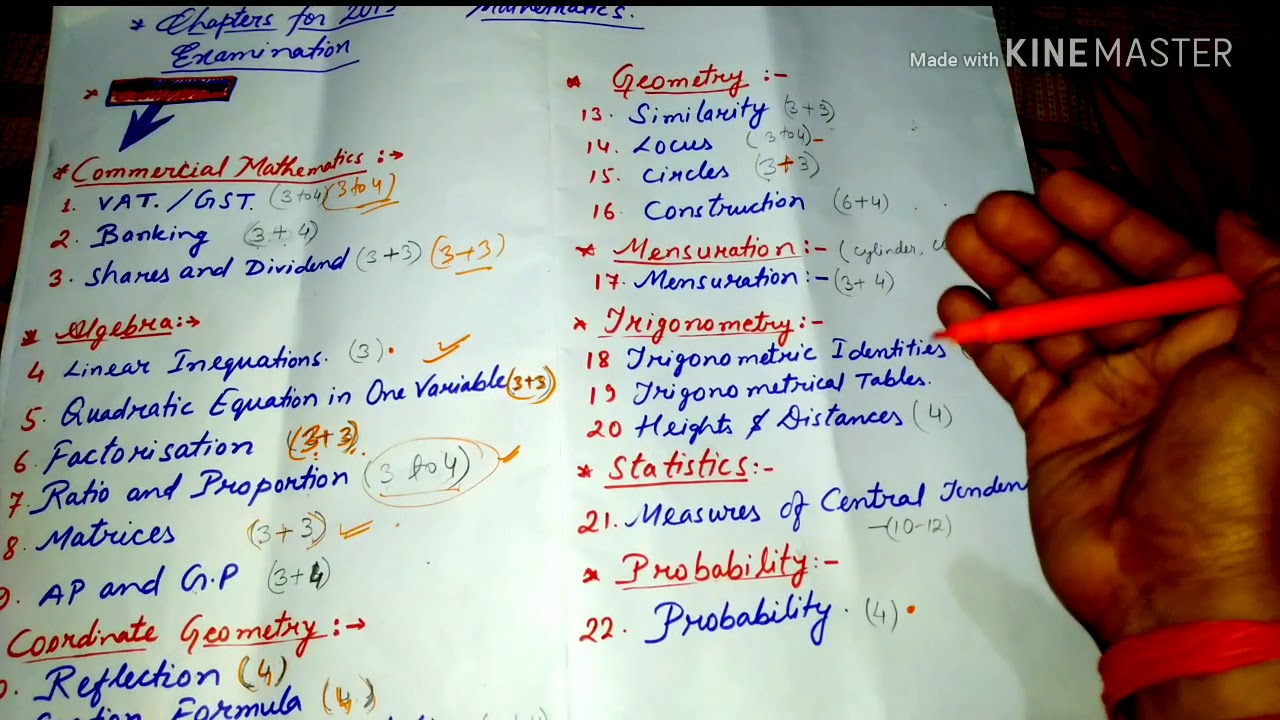 * Chapters for 2019 Mathematics.
Examination
*
* Commercial Mathematics :→
1. VAT. / GST. (3 to 4) (3 to 4)
2. Banking (3 + 4)
3. Shares and Dividend (3 + 3) (3+3)
* Algebra :→
4 Linear Inequations. (3)
5. Quadratic Equation in One Variable (3+3)
6. Factorisation (3+3).
7. Ratio and Proportion (3 to 4)
8. Matrices (3 + 3)
9. AP and G.P (3+4)
Coordinate Geometry :→
Reflection (4)
Section Formula (4)
Made with KINEMASTER
* Geometry :-
13. Similarity (3+3)
14. Locus (3 to 4)
15. Circles (3+3)
16. Construction (6+4)
* Mensuration :- (cylinder,
17. Mensuration :- (3+4)
* Trigonometry :-
18 Trigonometric Identities
19 Trigonometrical Tables.
20 Heights & Distances (4)
* Statistics :-
21. Measures of Central Tenden
-(10-12)
* Probability :-
22. Probability. (4)